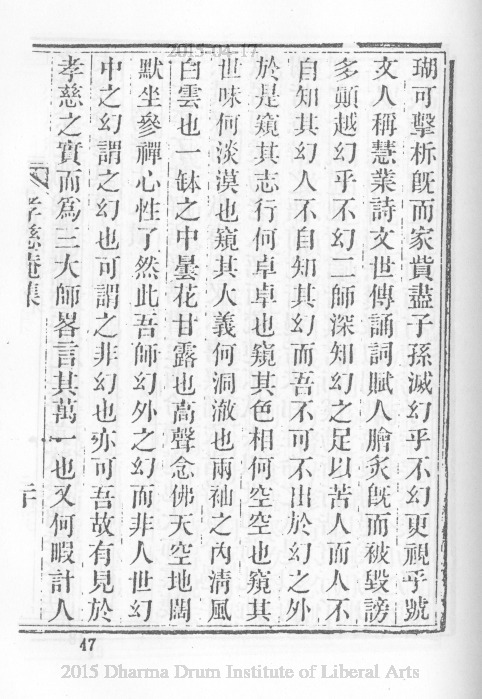 2015-04-17
瑚可擊柝旣而家貲盡子孫滅幻乎不幻更視乎號
文人稱慧業詩文世傳誦詞賦人膾炙旣而被毀謗
多顚越幻乎不幻二師深知幻之足以苦人而人不
自知其幻人不自知其幻而吾不可不出於幻之外
於是窺其志行何卓卓也窺其色相何空空也窺其
世味何淡漠也窺其大義何洞澈也兩袖之內清風
白雲也一缽之中曇花甘露也高聲念佛天空地闊
默坐參禪心性了然此吾師幻外之幻而非人世幻
中之幻謂之幻也可謂之非幻也亦可吾故有見於
孝慈之實而爲三大師畧言其萬一也又何暇計人
孝慈菴集
47
2015 Dharma Drum Institute of Liberal Arts